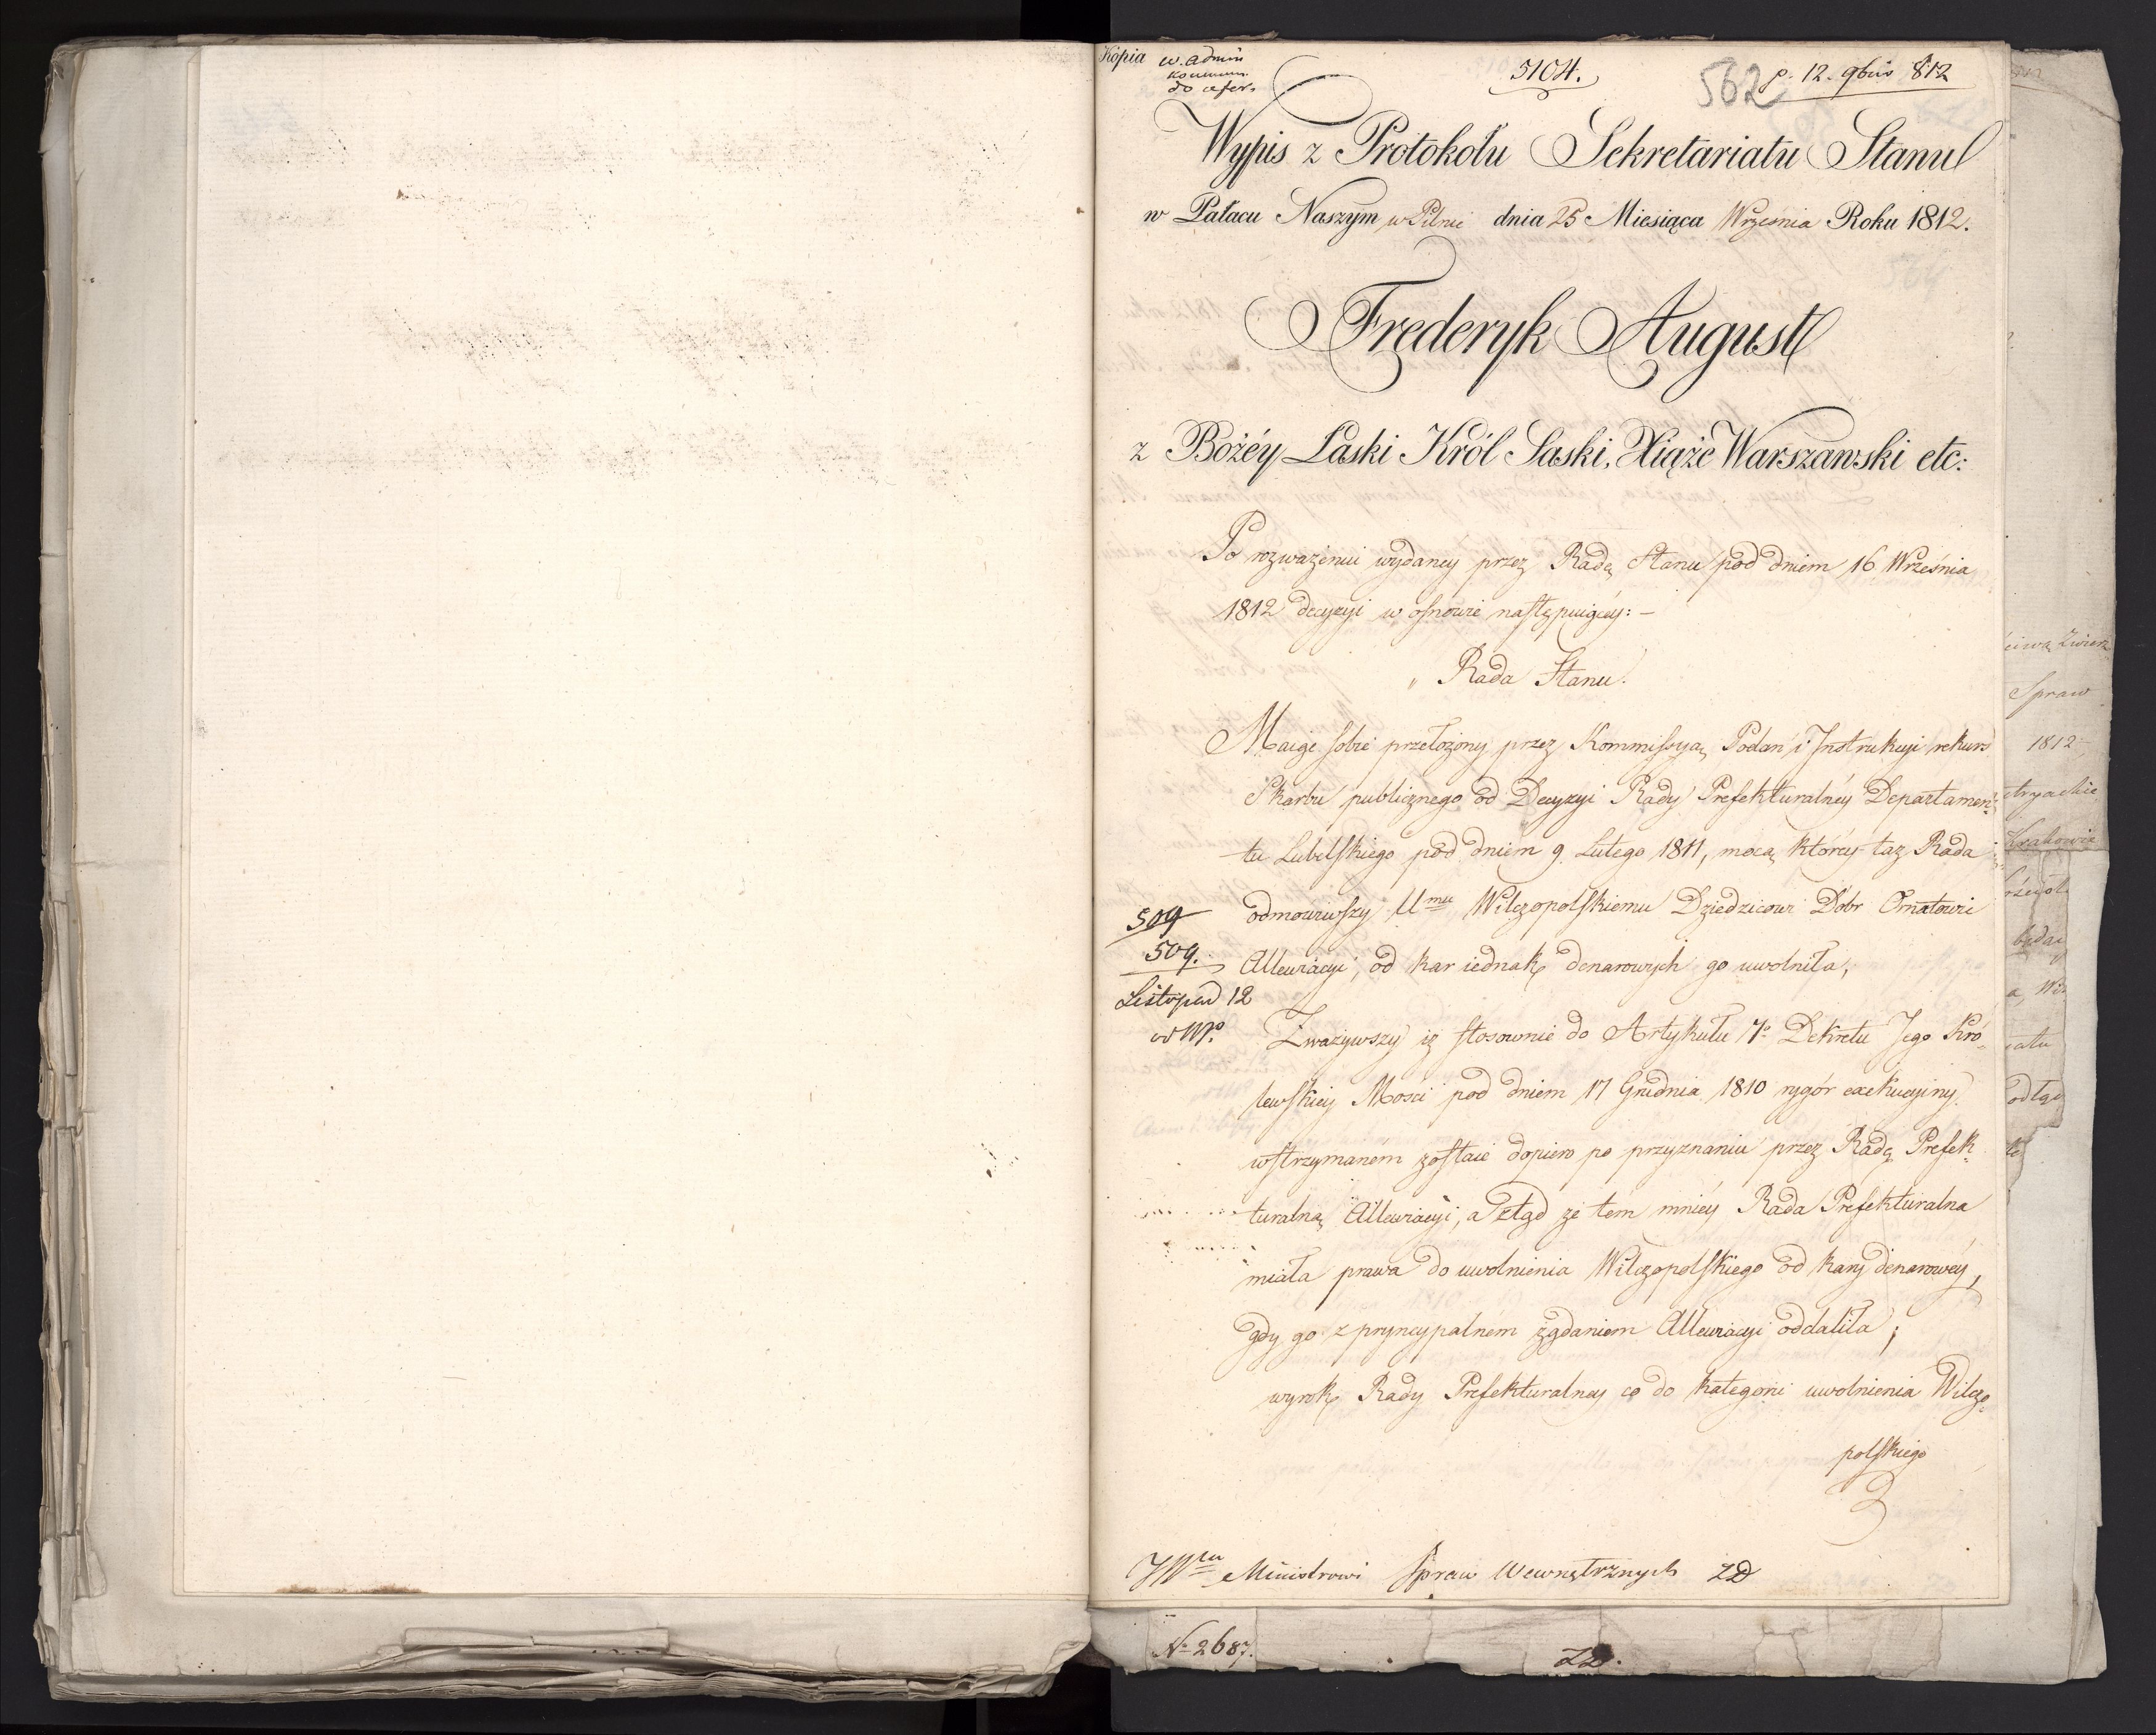 Kópia
w. admin
do refer.
5104.
562
p. 12. 9bris 812
Wypis z Protokołu Sekretariatu Stanu
w Pałacu Naszym w Pilnic dnia 25 Miesiąca Września Roku 1812.
Frederyk August
z Bożéy Łaski Król Saski, Xiąże Warszawski etc:
Po rozważeniu wydaney przez Radę Stanu pod dniem 16 Września
1812 decyzyi w osnowie następuiącéy: –
„ Rada Stanu.
Maiąc sobie przełożony przez Kommissyą Podań i Instrukcyi rekurs
Skarbu publicznego od Decyzyi Rady Prefekturalnéy Departamen-
tu Lubelskiego pod dniem 9 Lutego 1811, mocą którey taż Rada
odmówiwszy Umu Wilczopolskiemu Dziedzicowi Dóbr Ornatowic
Allewiacyi, od kar iednak denarowych go uwolniła,
509
509.
Listopad 12
od Mo.
Zważywszy iż stosownie do Artykułu 7o Dekretu Jego Kró-
lewskiey Mości pod dniem 17 Grudnia 1810 rygór exekucyiny
wstrzymaném zostaie dopiero po przyznaniu przez Radę Prefek-
turalną Allewiacyi, a ztąd że tém mniéy Rada Prefekturalna
miała prawa do uwolnienia Wilczopolskiego od kary denarowéy,
gdy go z pryncypalném żądaniem Allewiacyi oddaliła;
wyrok Rady Prefekturalney co do kategorii uwolnienia Wilczo-
polskiego
JWmu Ministrowi Spraw Wewnętrznych
No 2687.
Spraw
1812
Krakowie